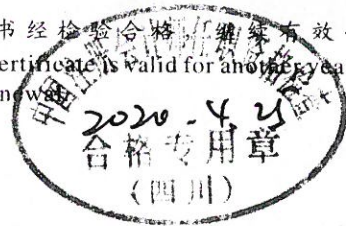 书经检验合格,继续有效
ertificate is valid for another yea
newal
2020-4.25
合格专用章
(四川)